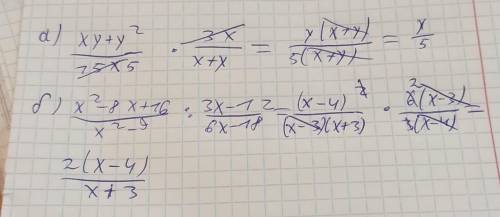 а) (xy+y²)/(25x5) · 3x/(x+x) = y(x+y)/5(x+y) = y/5
б) (x²-8x+16)/(x²-9) : (3x-12)/(6x-18) = (x-4)²/(x-3)(x+3) · 6(x-3)/3(x-4) =
2(x-4)/(x+3)